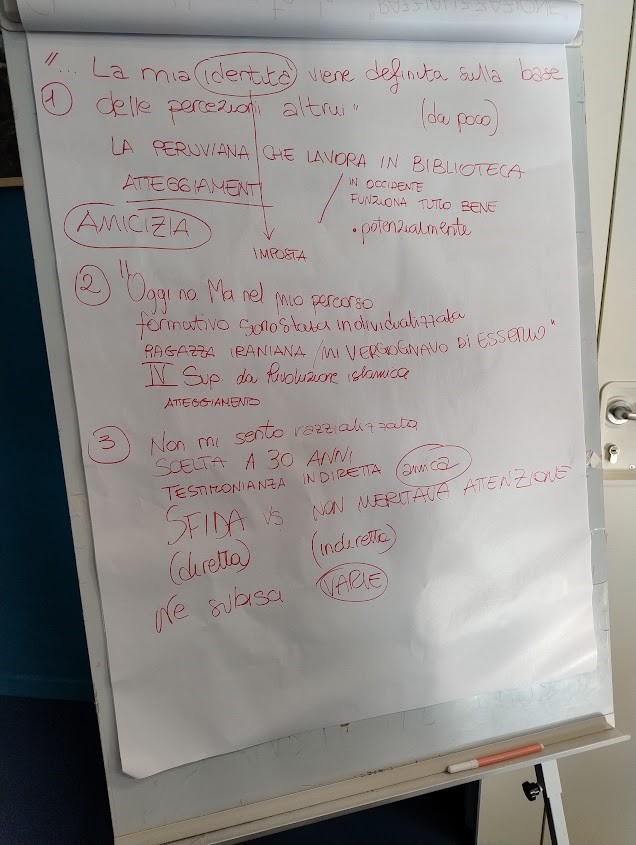 "... La mia identità viene definita sulla base
① delle percezioni altrui" (da poco)
LA PERUVIANA CHE LAVORA IN BIBLIOTECA
ATTEGGIAMENTI
IN OCCIDENTE
FUNZIONA TUTTO BENE
AMICIZIA
• potenzialmente
IMPOSTA
② "Oggi no. Ma nel mio percorso
formativo sono stata individualizzata
RAGAZZA IRANIANA / MI VERGOGNAVO DI ESSERLO"
IV Sup. da Rivoluzione islamica
ATTEGGIAMENTO
③ Non mi sento razzializzata
SCELTA A 30 ANNI
TESTIMONIANZA INDIRETTA amica
SFIDA VS NON MERITAVA ATTENZIONE
(diretta) (indiretta)
Ne subisci VARIE